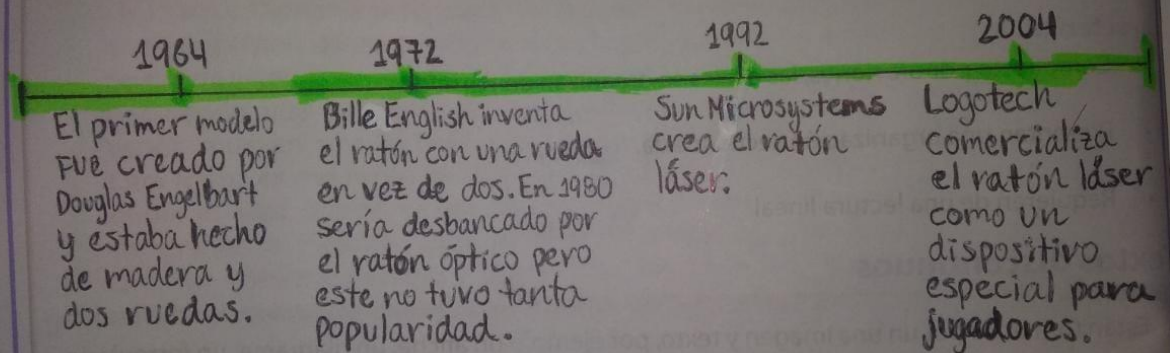 1964
1972
1992
2004
El primer modelo
fue creado por
Douglas Engelbart
y estaba hecho
de madera y
dos ruedas.
Bille English inventa
el ratón con una rueda
en vez de dos. En 1980
sería desbancado por
el ratón óptico pero
este no tuvo tanta
popularidad.
Sun Microsystems
crea el ratón
láser.
Logotech
comercializa
el ratón láser
como un
dispositivo
especial para
jugadores.